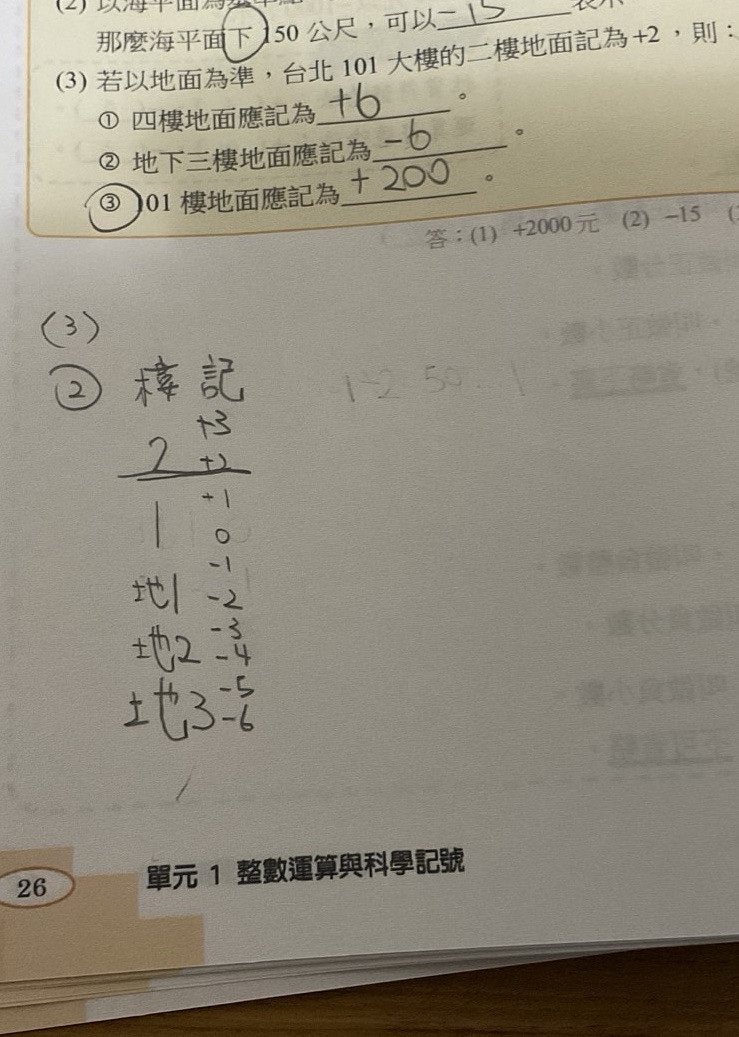 (2) 以海平面為基準點
那麼海平面下 150 公尺，可以 -15
(3) 若以地面為準，台北 101 大樓的二樓地面記為+2，則：
① 四樓地面應記為 +6 。
② 地下三樓地面應記為 -6 。
③ 101 樓地面應記為 +200 。
答：(1) +2000元 (2) -15
(3)
② 樓 記
+3
2 +2
+1
1 0
-1
地1 -2
-3
地2 -4
-5
地3 -6
26 單元 1 整數運算與科學記號